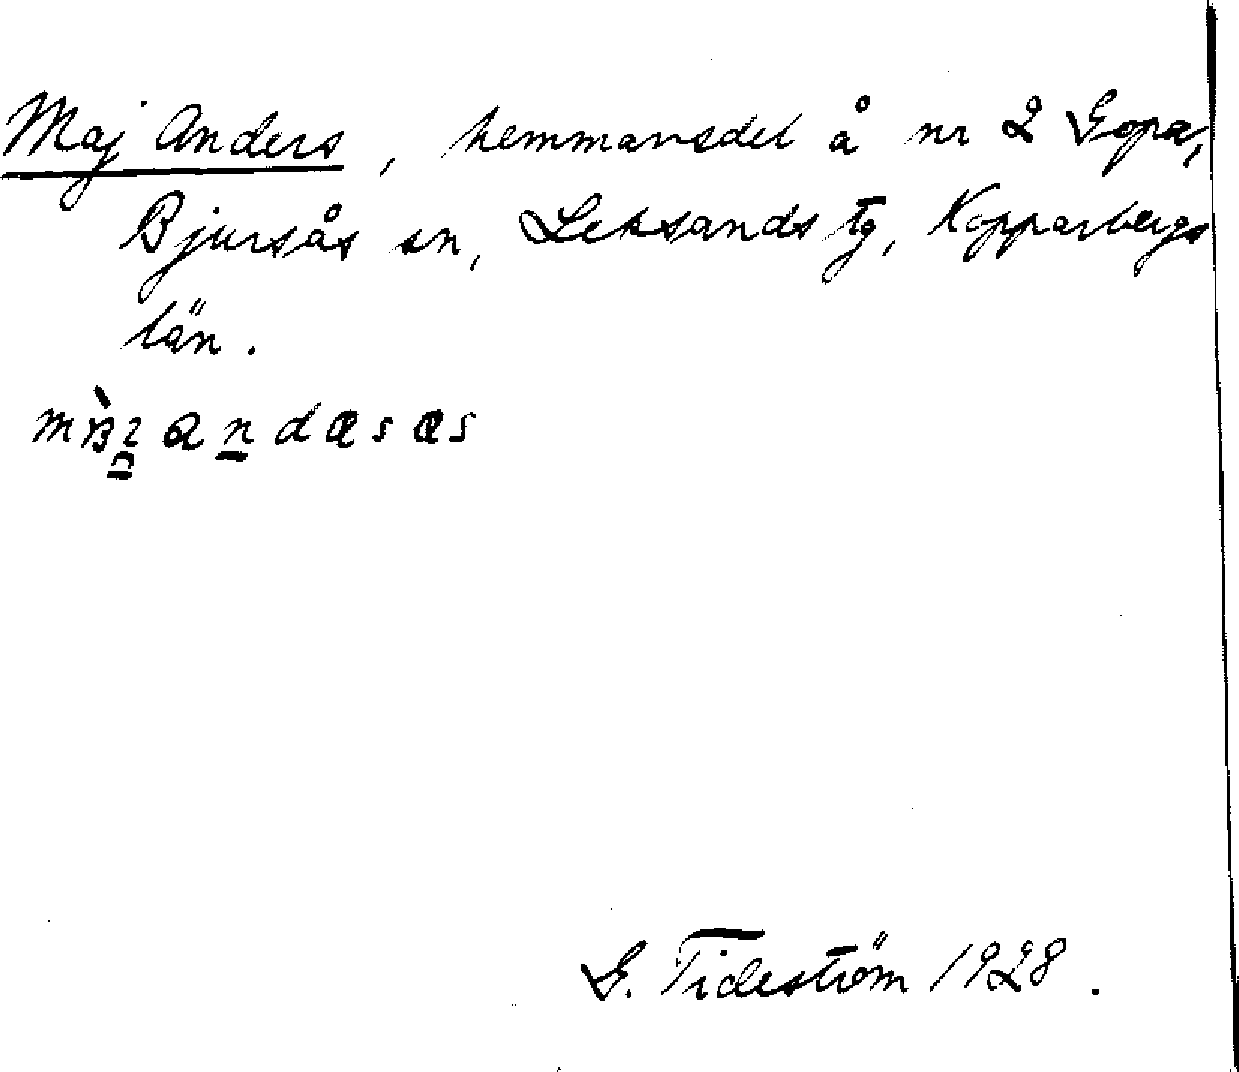 Maj Anders, hemmansdel å nr 2 Gopa,
Bjursås sn, Leksands tg, Kopparbergs
län.
G. Tideström 1928.